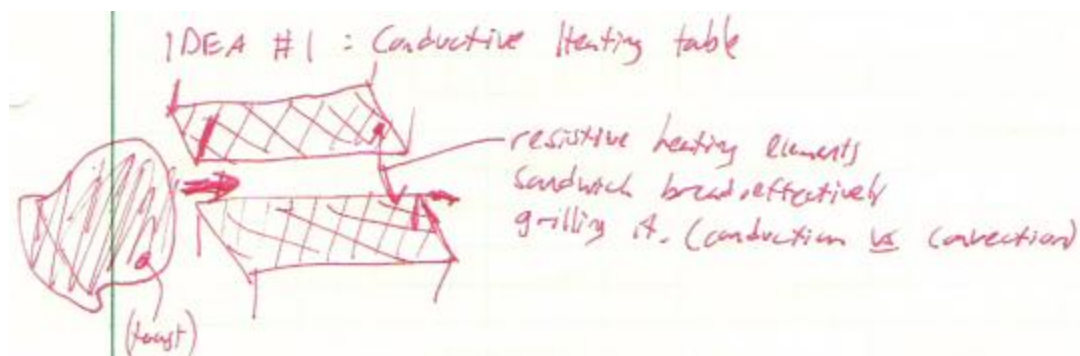 IDEA #1 : Conductive Heating table
resistive heating elements
sandwich bread, effectively
grilling it. (conduction vs convection)
(toast)